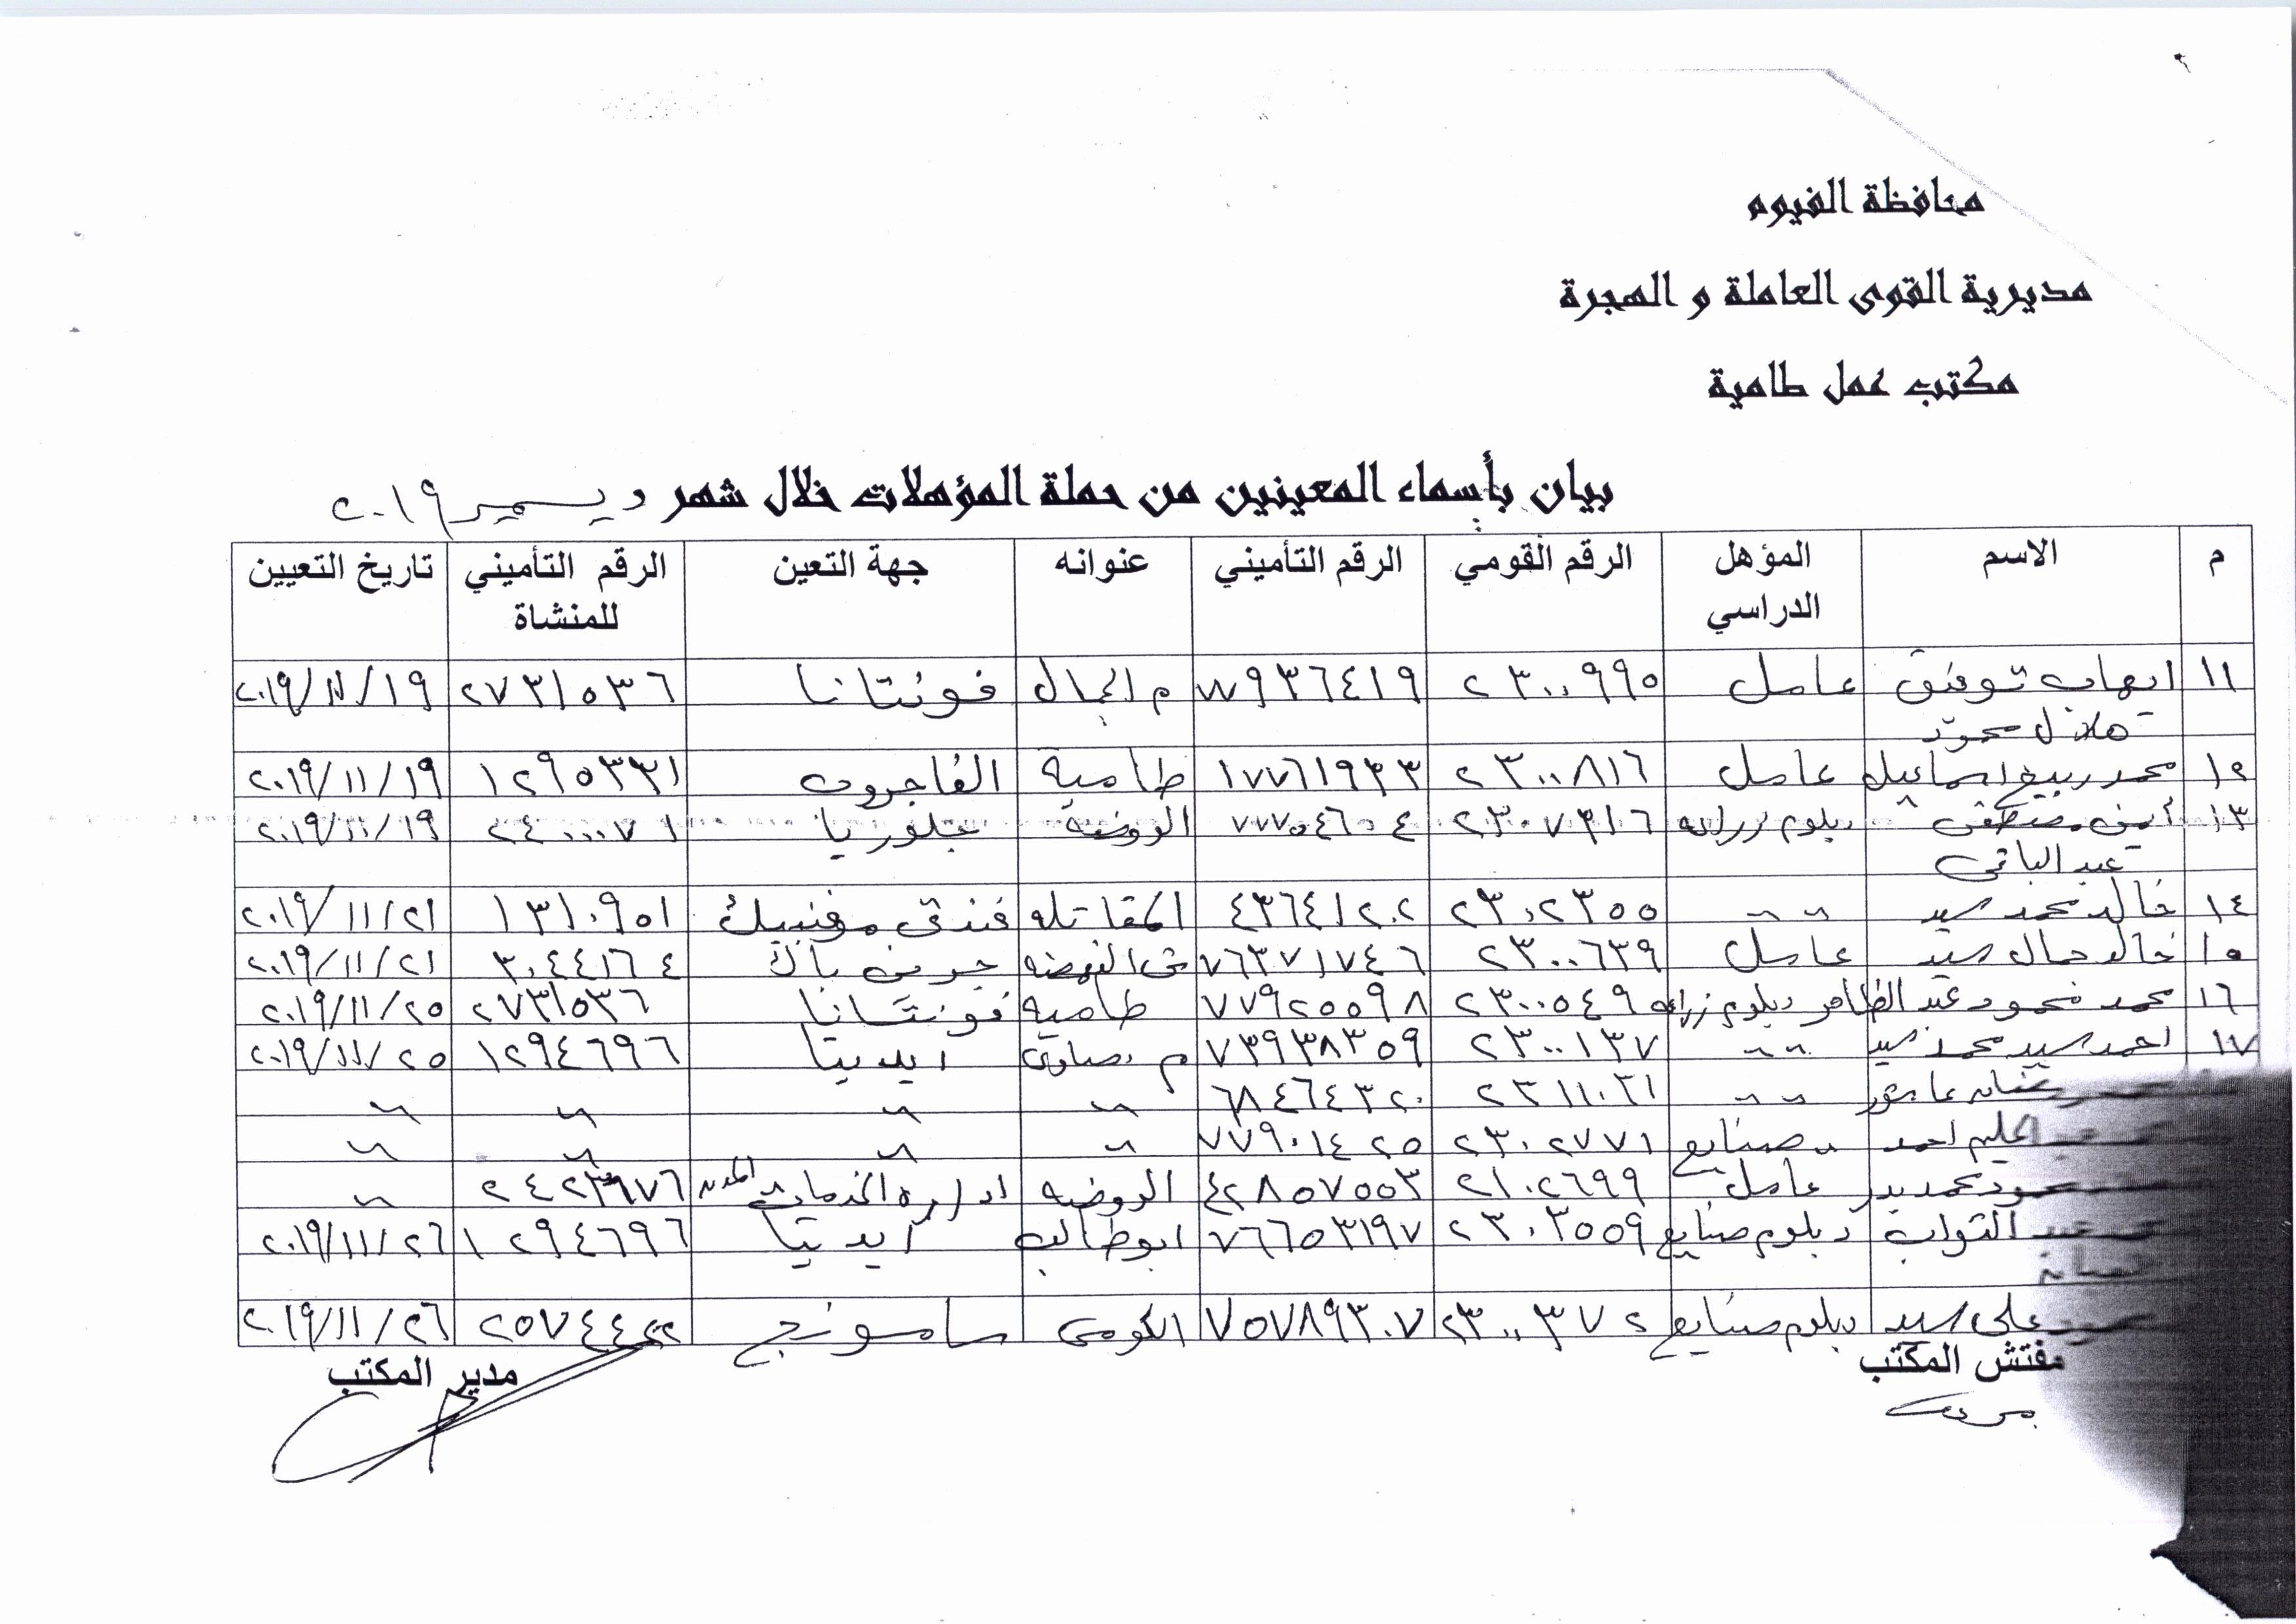 محافظة الفيوم
مديرية القوى العاملة و الهجرة
مكتب عمل طامية
بيان بأسماء المعينين من حملة المؤهلات خلال شهر ديسمبر ٢٠١٩
م الاسم المؤهل الدراسي الرقم القومي الرقم التأميني عنوانه جهة التعين الرقم التأميني للمنشاة تاريخ التعيين
١١ ايهاب توفيق عامل ٢٣٠٠٩٩٥ ٧٧٩٣٦٤١٩ م الجمال فونتانا ٢٧٣١٥٣٦ ٢٠١٩/١١/١٩
هلال محمود
١٢ محمد ربيع اسماعيل عامل ٢٣٠٠٨١٦ ١٧٧٦١٩٣٣ طامية الفاجروب ١٢٩٥٣٣١ ٢٠١٩/١١/١٩
١٣ أيمن مصطفى دبلوم زراعه ٢٣٠٧٣١٦ الروضه ٢٤٠٠٠٠٧١ ٢٠١٩/١١/١٩
عبد الباقى
١٤ خالد محمد سيد 〃 〃 ٢٣٠٢٣٥٥ ٤٣٦٤١٢٠٢ المقاتله فندق موفنبيك ١٣١٠٩٥١ ٢٠١٩/١١/٢١
١٥ خالد جمال سيد عامل ٢٣٠٠٦٣٩ ٧٦٣٧١٧٤٦ جرين باك ٣٠٤٤١٦٤ ٢٠١٩/١١/٢١
١٦ محمد محمود عبد الظاهر دبلوم زراعه ٢٣٠٠٥٤٩ ٧٧٩٢٥٥٩٨ طامية فونتانا ٢٧٣١٥٣٦ ٢٠١٩/١١/٢٥
١٧ احمد سيد محمد سيد 〃 〃 ٢٣٠٠١٣٧ ٧٣٩٣٨٣٥٩ م بصاوى ايديتا ١٢٩٤٦٩٦ ٢٠١٩/١١/٢٥
عاشور 〃 〃 ٢٣١١٠٣١ ٦٨٤٦٤٣٢٠ 〃 〃 〃 〃
احمد 〃 صنايع ٢٣٠٢٧٧١ ٧٧٩٠١٤٢٥ 〃 〃 〃 〃
محمد بدر عامل ٢١٠٢٦٩٩ ٤٢٨٥٧٥٥٣ الروضه اداره الخدمات 〃
عبد التواب دبلوم صنايع ٢٣٠٣٥٥٩ ٧٦٦٥٣١٩٧ ابوطالب ايديتا ١٢٩٤٦٩٦ ٢٠١٩/١١/٢٦
على سيد دبلوم صنايع ٢٣٠٠٣٧٢ ٧٥٧٨٩٣٠٧ الكومى سامسونج ٢٠١٩/١١/٢٦
مفتش المكتب مدير المكتب